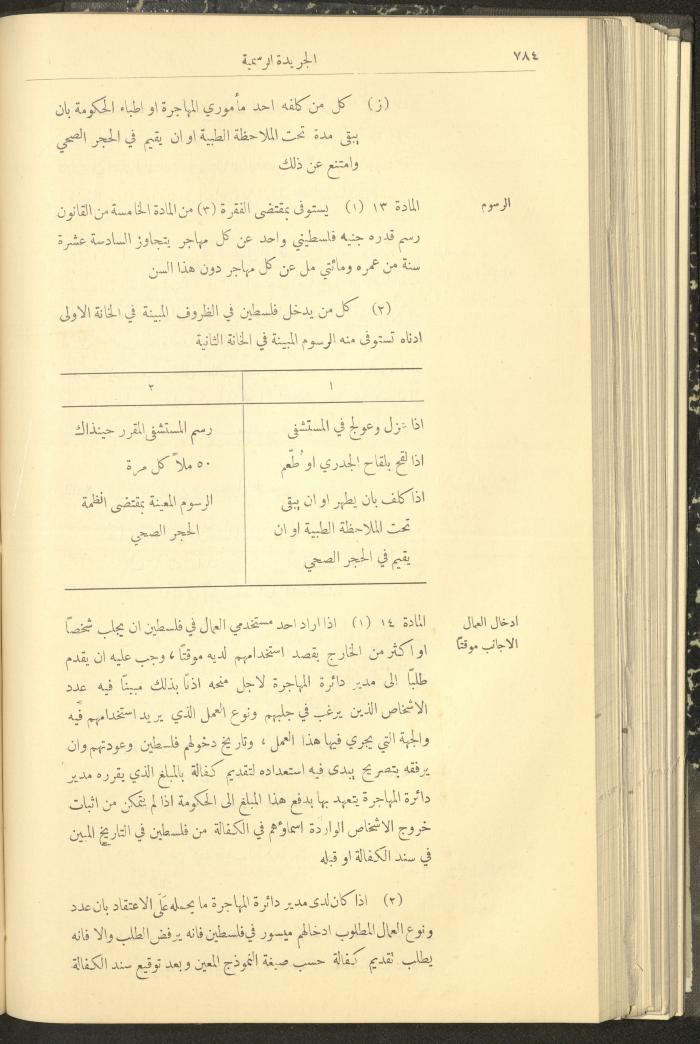 ٧٨٤
الجريدة الرسمية
(ز) كل من كلفه احد مأموري المهاجرة او اطباء الحكومة بان
يبقى مدة تحت الملاحظة الطبية او ان يقيم في الحجر الصحي
وامتنع عن ذلك
الرسوم
المادة ١٣ (١) يستوفى بمقتضى الفقرة (٣) من المادة الخامسة من القانون
رسم قدره جنيه فلسطيني واحد عن كل مهاجر يتجاوز السادسة عشرة
سنة من عمره ومائتي مل عن كل مهاجر دون هذا السن
(٢) كل من يدخل فلسطين في الظروف المبينة في الخانة الاولى
ادناه تستوفى منه الرسوم المبينة في الخانة الثانية
١ ٢
اذا نزل وعولج في المستشفى رسم المستشفى المقرر حينذاك
اذا لقح بلقاح الجدري او طُعّم ٥٠ ملاً كل مرة
اذا كلف بان يطهر او ان يبقى الرسوم المعينة بمقتضى انظمة
تحت الملاحظة الطبية او ان الحجر الصحي
يقيم في الحجر الصحي
ادخال العمال
الاجانب موقتًا
المادة ١٤ (١) اذا اراد احد مستخدمي العمال في فلسطين ان يجلب شخصًا
او اكثر من الخارج بقصد استخدامهم لديه موقتًا، وجب عليه ان يقدم
طلبًا الى مدير دائرة المهاجرة لاجل منحه اذنًا بذلك مبينًا فيه عدد
الاشخاص الذين يرغب في جلبهم ونوع العمل الذي يريد استخدامهم فيه
والجهة التي يجري فيها هذا العمل، وتاريخ دخولهم فلسطين وعودتهم وان
يرفقه بتصريح يبدى فيه استعداده لتقديم كفالة بالمبلغ الذي يقرره مدير
دائرة المهاجرة يتعهد بها بدفع هذا المبلغ الى الحكومة اذا لم يتمكن من اثبات
خروج الاشخاص الواردة اسماؤهم في الكفالة من فلسطين في التاريخ المبين
في سند الكفالة او قبله
(٢) اذا كان لدى مدير دائرة المهاجرة ما يحمله عَلَى الاعتقاد بان عدد
ونوع العمال المطلوب ادخالهم ميسور في فلسطين فانه يرفض الطلب والا فانه
يطلب تقديم كفالة حسب صبغة النموذج المعين وبعد توقيع سند الكفالة